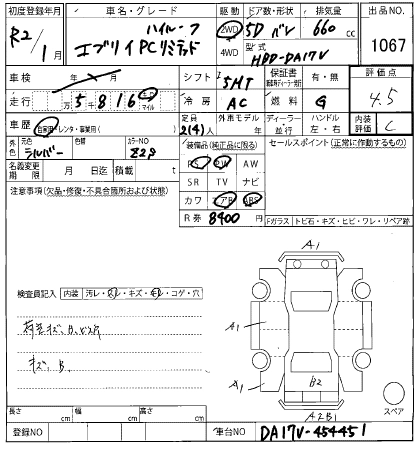 初度登録年月 車名・グレード 駆動 ドア数・形状 排気量 出品NO.
R2/1月 ハイルーフ エブリイPCリミテッド 2WD 4WD 5D バン 660cc 1067
型式 HBD-DA17V
車検 年 月 シフト 5MT 保証書 有・無 評価点 4.5
走行 5万8816 km マイル 冷房 AC 燃料 G
車歴 自家用・レンタ・事業用( ) 定員 2(4)人 外車モデル 年 ディーラー・並行 ハンドル 左・右 内装評価 C
外色 元色 シルバー 色替 カラーNO Z2S
装備品(純正品に限る) セールスポイント(正常に作動するもの)
PS PW AW
名義変更期限 月 日迄 積載 t SR TV ナビ
注意事項(欠品・修復・不具合箇所および状態) カワ エアB ABS
R券 8400
Fガラス トビ石・キズ・ヒビ・ワレ・リペア跡
A1
検査員記入 内装 汚レ・スレ・キズ・切レ・コゲ・穴
A1
キズ、B
A1
B2
A2B1
スペア
長さ cm 幅 cm 高さ cm
登録NO 車台NO DA17V-454451